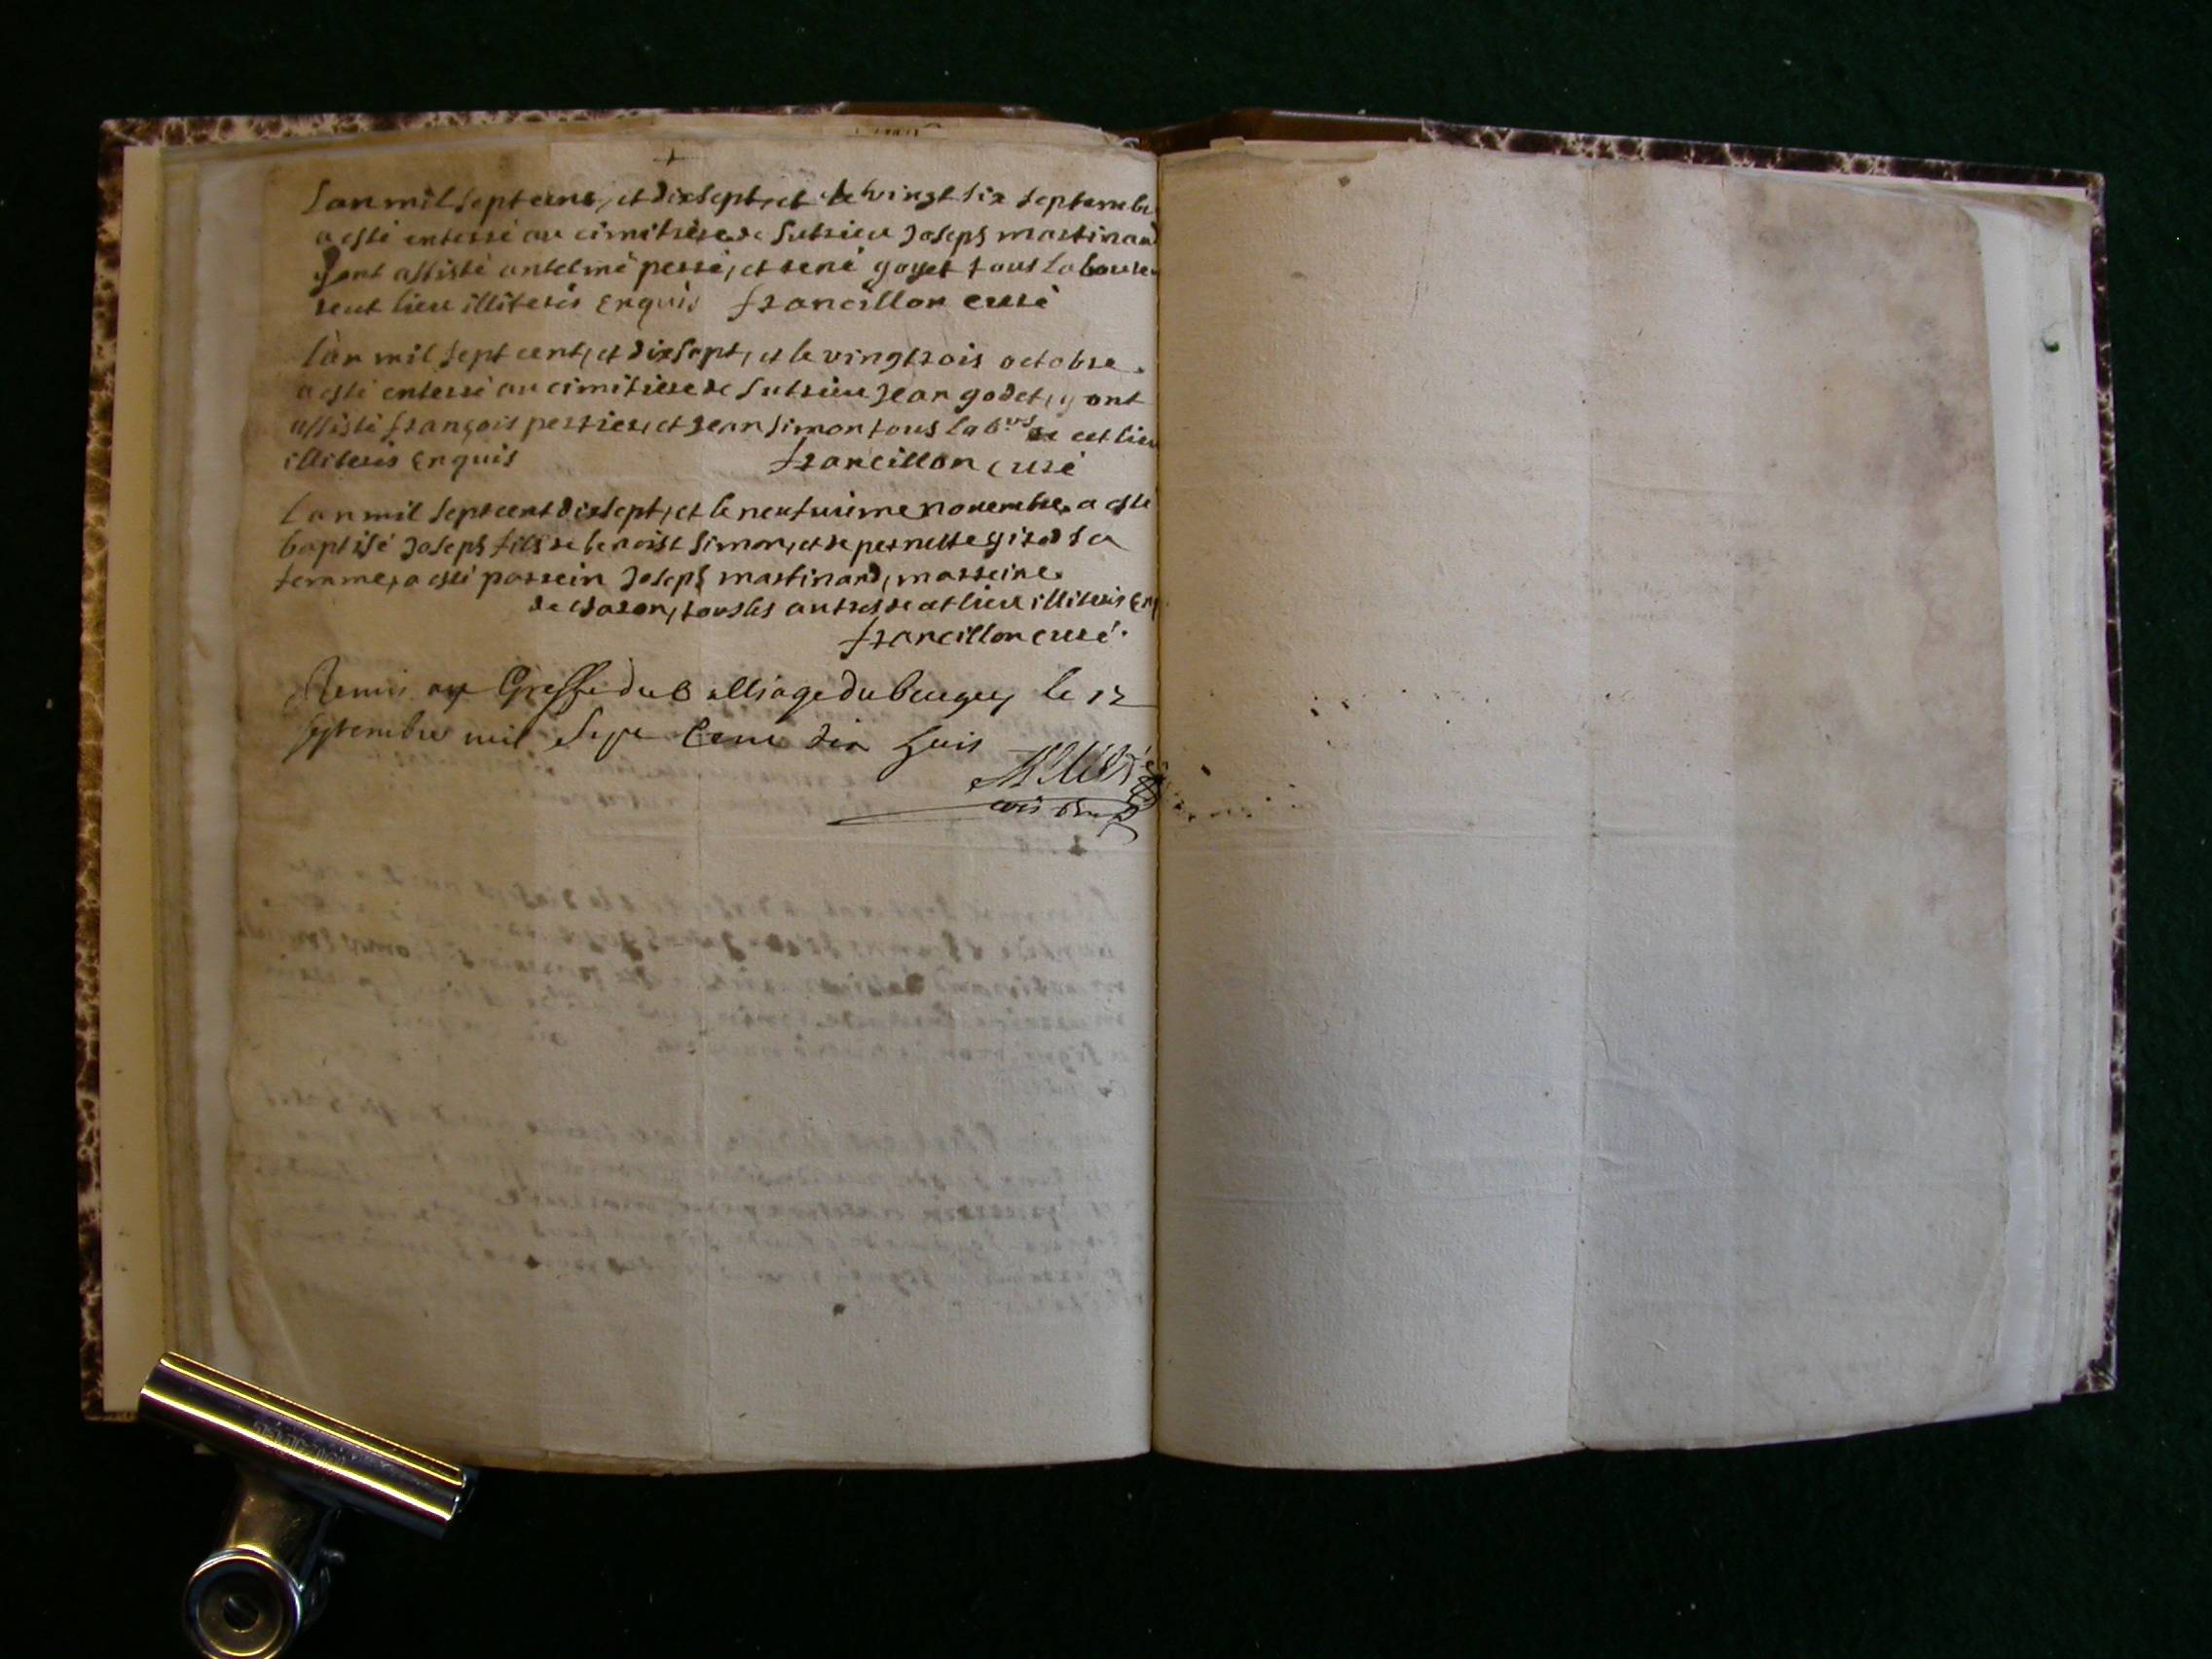 Lan mil sept cent, et dixsept, et le vingt six septembr
a esté enterré au cimitiere de Sutrieu Joseph martinand
y ont assisté antelme perré, et rené goyet tous laboure
de cet lieu illiterés Enquis francillon curé
Lan mil sept cent, et dixsept, et le vingtrois octobre.
a esté enterré au cimitiere de Sutrieu Jean godet, y ont
assisté françois perrier, et Jean simon tous labrs de cet lieu
illiterés Enquis francillon curé
Lan mil sept cent dixsept, et le neufvieme novembre a esté
baptisé Joseph fils de benoist simon, et de pernette girod sa
femme, a esté parrein Joseph martinand, marreine
tous les autres de cet lieu illiterés Enq
francillon curé.
Remis au Greffe du Balliage du bugey le 12
septembre mil Sept Cent dix huit